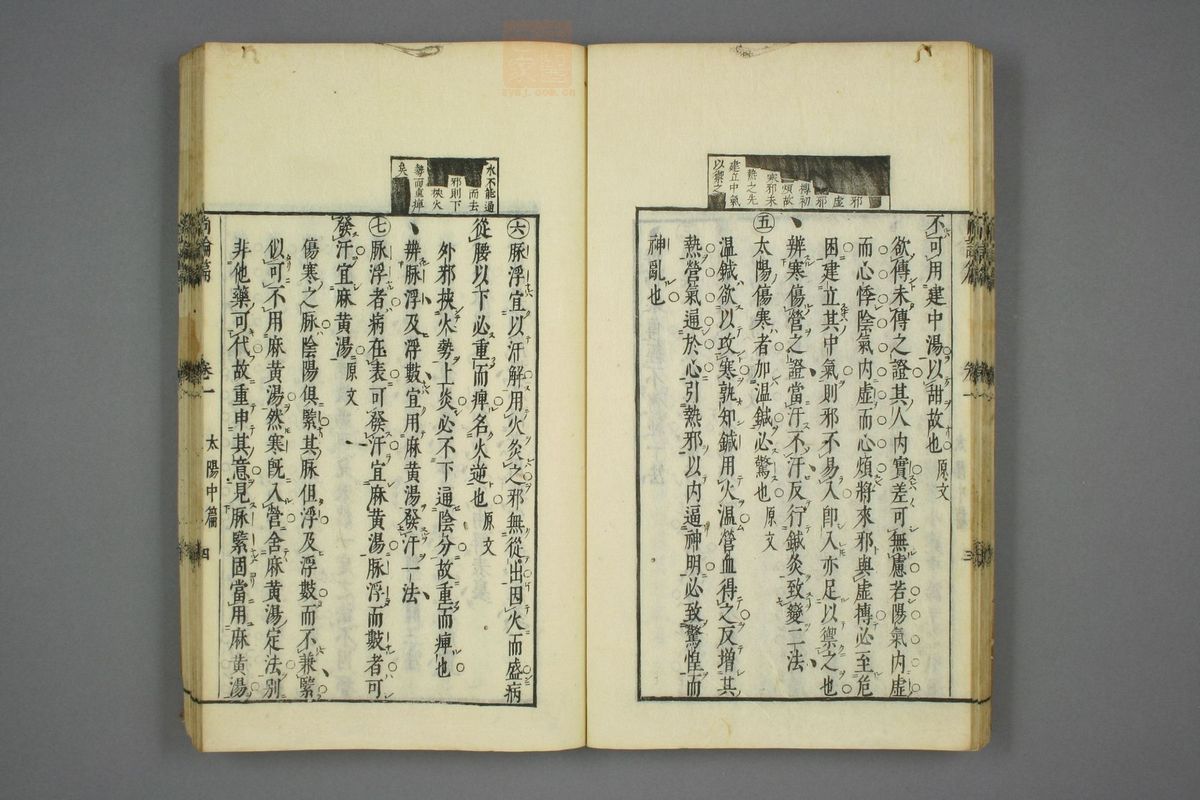 不可用建中湯以甜故也原文
欲傳未傳之證其人內實差可無慮若陽氣內虛
而心悸陰氣內虛而心煩將來邪與虛搏必至危
困建立其中氣則邪不易入卽入亦足以禦之也
辨寒傷營之證當汗不汗反行鍼灸致變二法
五 太陽傷寒者加溫鍼必驚也原文
溫鍼欲以攻寒孰知鍼用火溫營血得之反增其
熱營氣遍於心引熱邪以內逼神明必致驚惶而
神亂也
邪
虛
邪
搏初
煩故
寒邪未
熱之先
建立中氣
以禦之
三
六 脉浮宜以汗解用火灸之邪無從出因火而盛病
從腰以下必重而痺名火逆也原文
外邪挾火勢上炎必不下通陰分故重而痺也
辨脉浮及浮數宜用麻黃湯發汗一法
七 脉浮者病在表可發汗宜麻黃湯脉浮而數者可
發汗宜麻黃湯原文
傷寒之脉陰陽俱緊其脉但浮及浮數而不兼緊
似可不用麻黃湯然寒旣入營舍麻黃湯定法別
非他藥可代故重申其意見脉緊固當用麻黃湯
水不能通
而去
邪則下
挾火
勢而眞痺
矣
尚論篇 卷一 太陽中篇 四